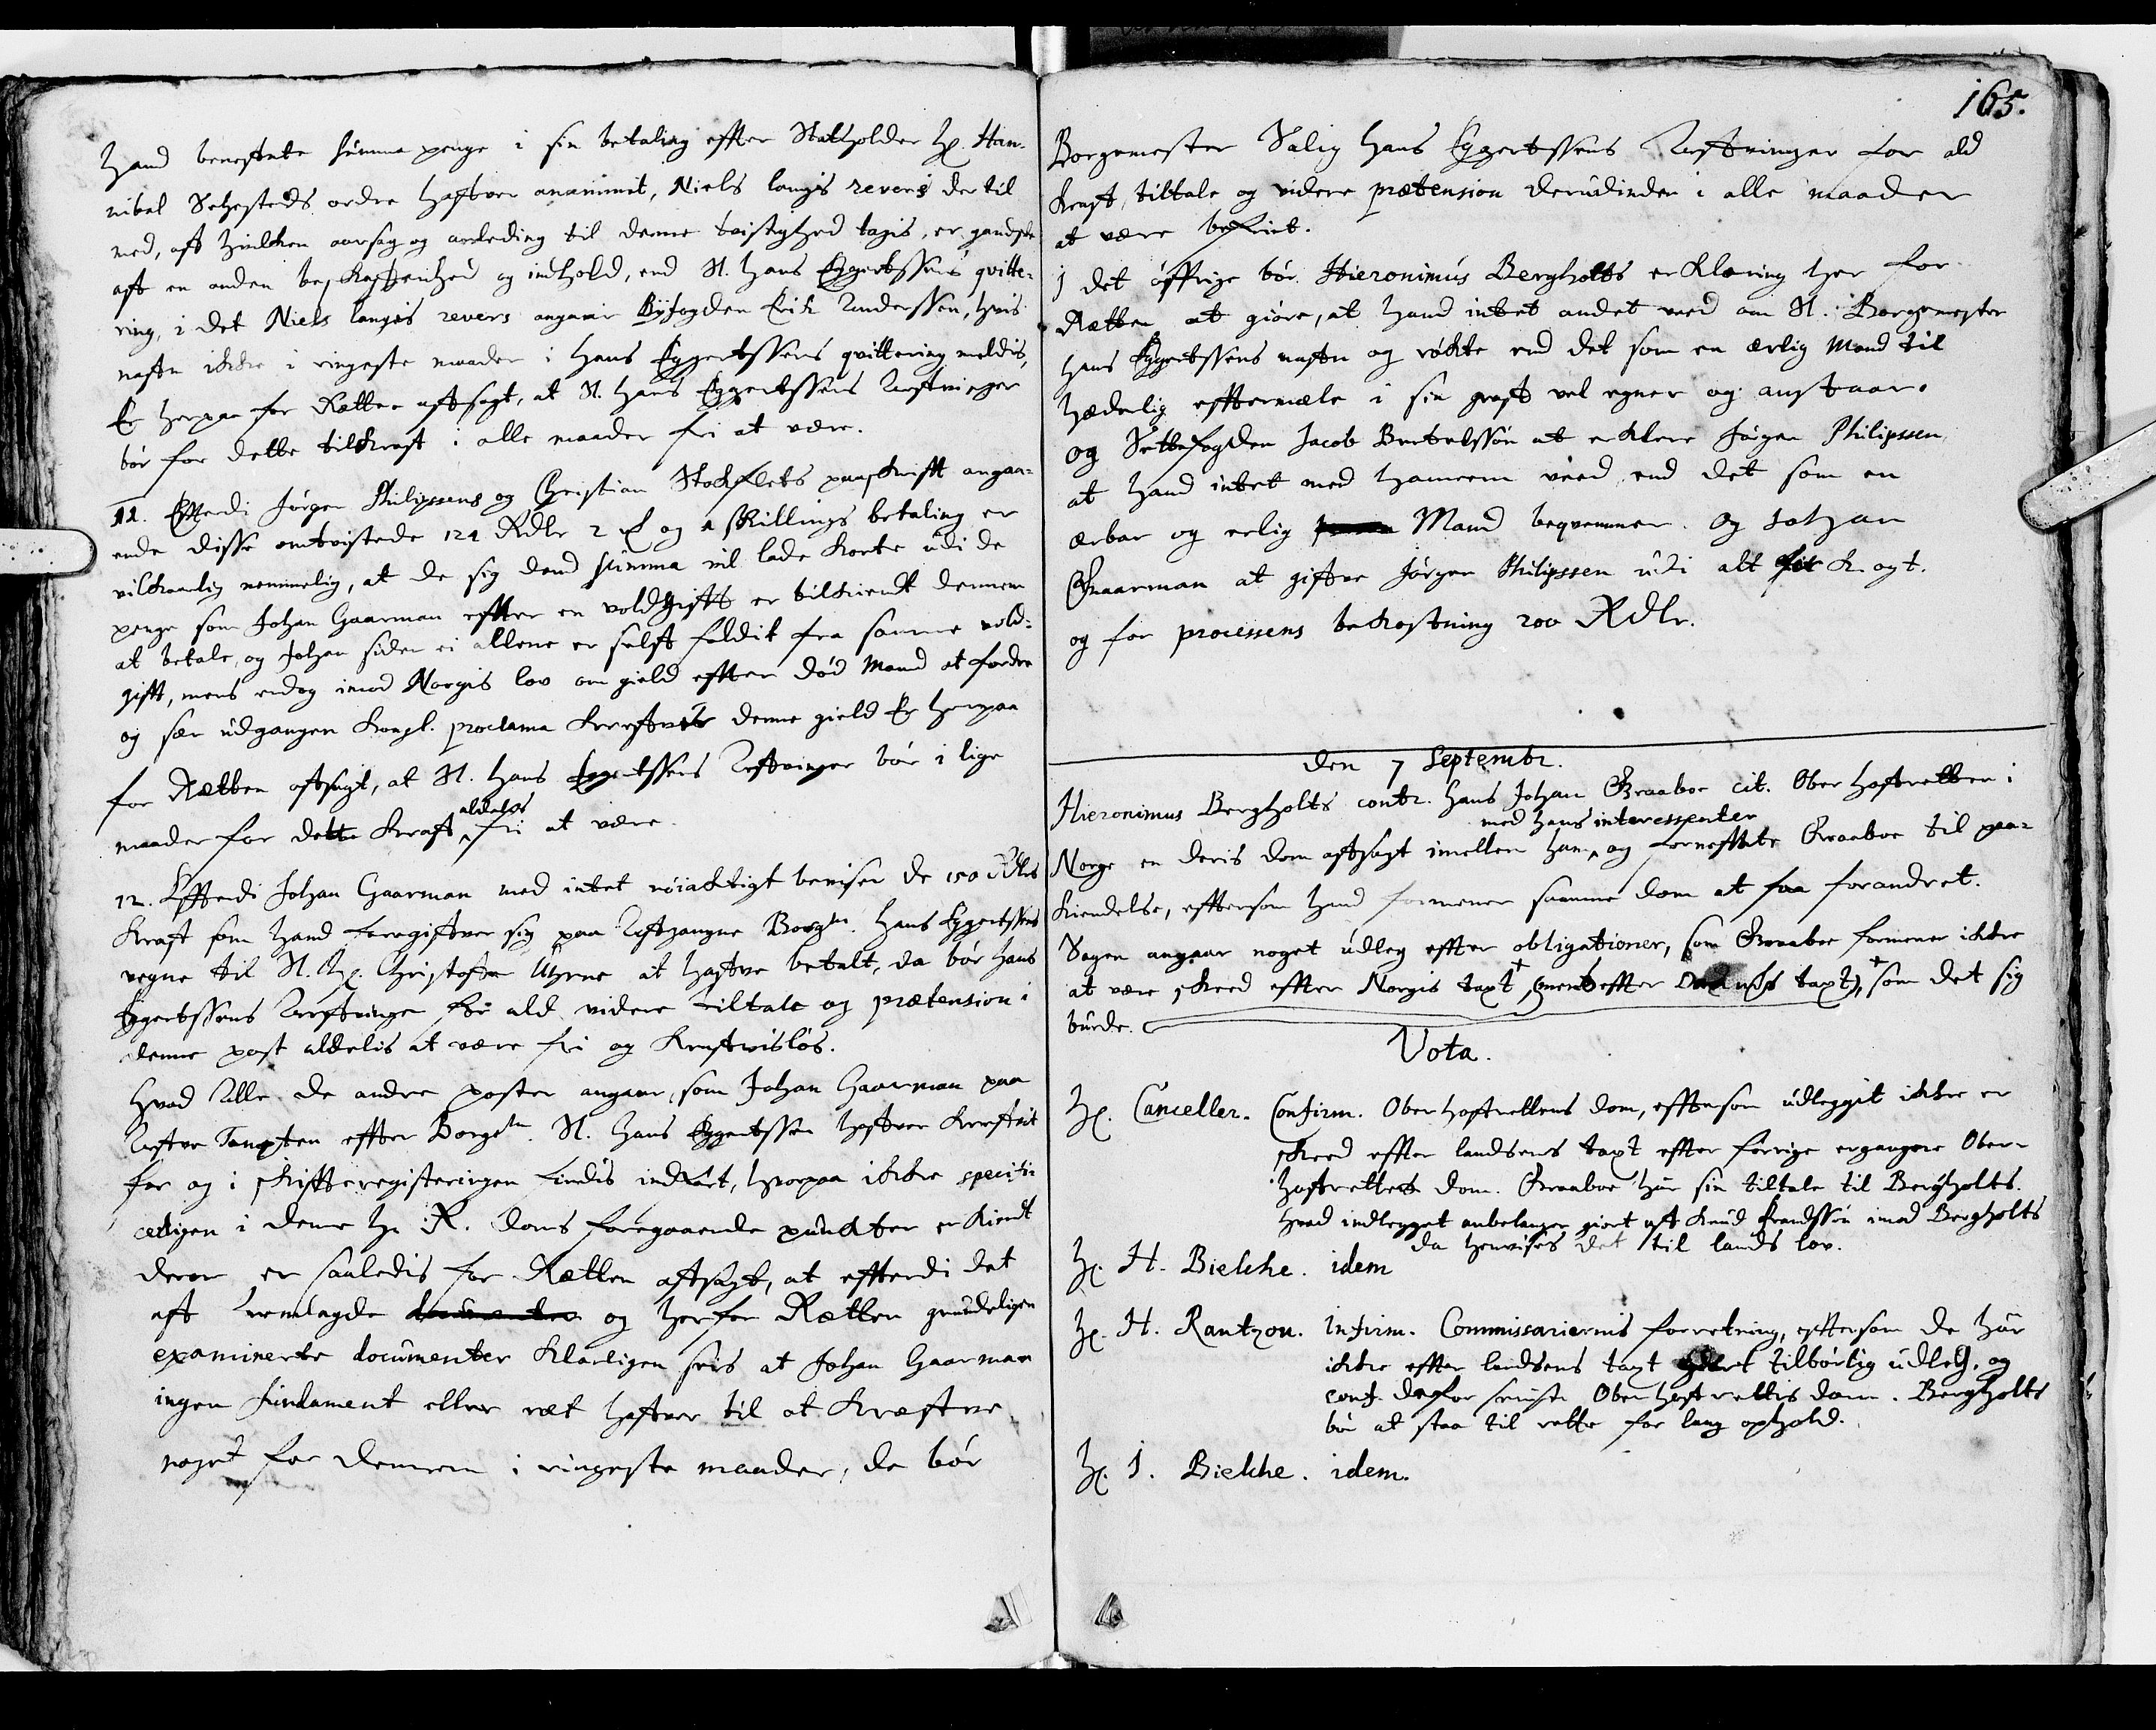 hand benefnte summa penge i sin betaling effter Statholder Hr. Han-
nibal Sehesteds ordre hafver anammit, Niels langis revers der til
med, aff hvilken aarsag og anleding til denne tvistighed tagis, er gandske
aff en anden beskaffenhed og indhold, end Sl. Hans Eggertssens qvitte-
ring, i det Niels langis revers angaar Byfogden Erik Anderssen, hvis
nafn ikke i ringeste maader i Hans Eggertssens qvittering meldis,
Er herpaa for Rætten afsagt, at Sl. Hans Eggertssens Arfvinger
bør for dette tilkraf i alle maader fri at være.
11. Efterdi Jørgen Philipssens og Christian Stockflets paaskrifft angaa-
ende disse omtvistede 121 Rdlr 2 og 1 skillings betaling er
vilkaarlig nemmelig, at de sig dend summa vil lade korte udi de
penge som Johan Gaarman effter en voldgifft er tilkiendt dennem
at betale, og Johan siden ei allene er self faldit fra samme vold-
gifft, mens endog imod Norgis lov om gield effter død Mand at fordre
og sær udgangen kongl. proclama krefvit denne gield Er herpaa
for Rætten afsagt, at Sl. Hans Eggertssens Arfvinger bør i lige
maader for dette kraf aldelis fri at være.
12. Efterdi Johan Gaarman med intet nøiaktigt beviser de 150 Rdlrs
kraf som hand foregifver sig paa Afgangne Borgm. Hans Eggertssens
vegne til Sl. Hr. Christoffer Uhrne at hafve betalt, da bør Hans
Eggertssens Arfvinge for ald videre tiltale og prætension i
denne post aldelis at være fri og krafvisløs.
Hvad Alle de andre poster angaar, som Johan Gaarman paa
effter Borgm. Sl. Hans Eggertssen hafver krefvit
for og i skiffteregisteringen findis indført, hvorpaa ikke specifi-
cerligen i denne H. R. doms foregaaende puncter er kiendt
derom er saaledis for Rætten afsagt, at efterdi det
aff fremlagde documenter og her for Rætten grundeligen
examinerte documenter klarligen sees at Johan Gaarman
ingen fundament eller ræt hafver til at kræfve
noget for dennem i ringeste maader, da bør
165.
Borgemester Salig Hans Eggertssens Arfvinger for ald
kraf, tiltale og videre prætension derudinden i alle maader
at være befriet.
I det øffrige bør Hieronimus Bergholts erklæring her for
Rætten at giøre, at hand intet andet veed om Sl. Borgemester
Hans Eggertssens nafn og røckte end det som en ærlig Mand til
hæderlig efftermæle i sin graf vel egner og anstaar.
og Settefogden Jacob Bertelssøn at erklere Jørgen Philipssen
at hand intet med hannem veed, end det som en
ærbar og erlig Mand beqvemmer. og Johan
Gaarman at gifve Jørgen Philipssen udi alt
og for processens bekostning 200 Rdlr.
den 7 Septembr.
Hieronimus Bergholts contr. Hans Johan Graaboe cit. Ober hofretten i
med hans interessenter
Norge en deris dom afsagt imellem ham, og fornefnte Graaboe til paa-
kiendelse, effterson hand formener samme dom at faa forandret.
Sagen angaar noget udleg effter obligationer, som Graaboe formener ikke
at være skeed effter Norgis taxt, (ment effter taxt), som det sig
burde.
Vota.
Hr. Canceller. Confirm. Oberhofrettens dom, effterson udleggit ikke er
skeed effter landsens taxt effter forrige ergangne Ober-
hofrettes dom. Graaboe har sin tiltale til Bergholts.
hvad indlegget anbelanger giort aff Knud Frandssøn imod Bergholts
da henvises det til lands lov.
Hr. H. Bielche. idem
Hr. H. Rantzou. Infirm. Commissariernis forretning, effterson de har
ikke effter landsens taxt tilbørlig udleg, og
conf. derfor seniste Oberhofrettis dom. Bergholts
bør at staa til rette for lang ophold.
Hr. J. Bielche. idem.